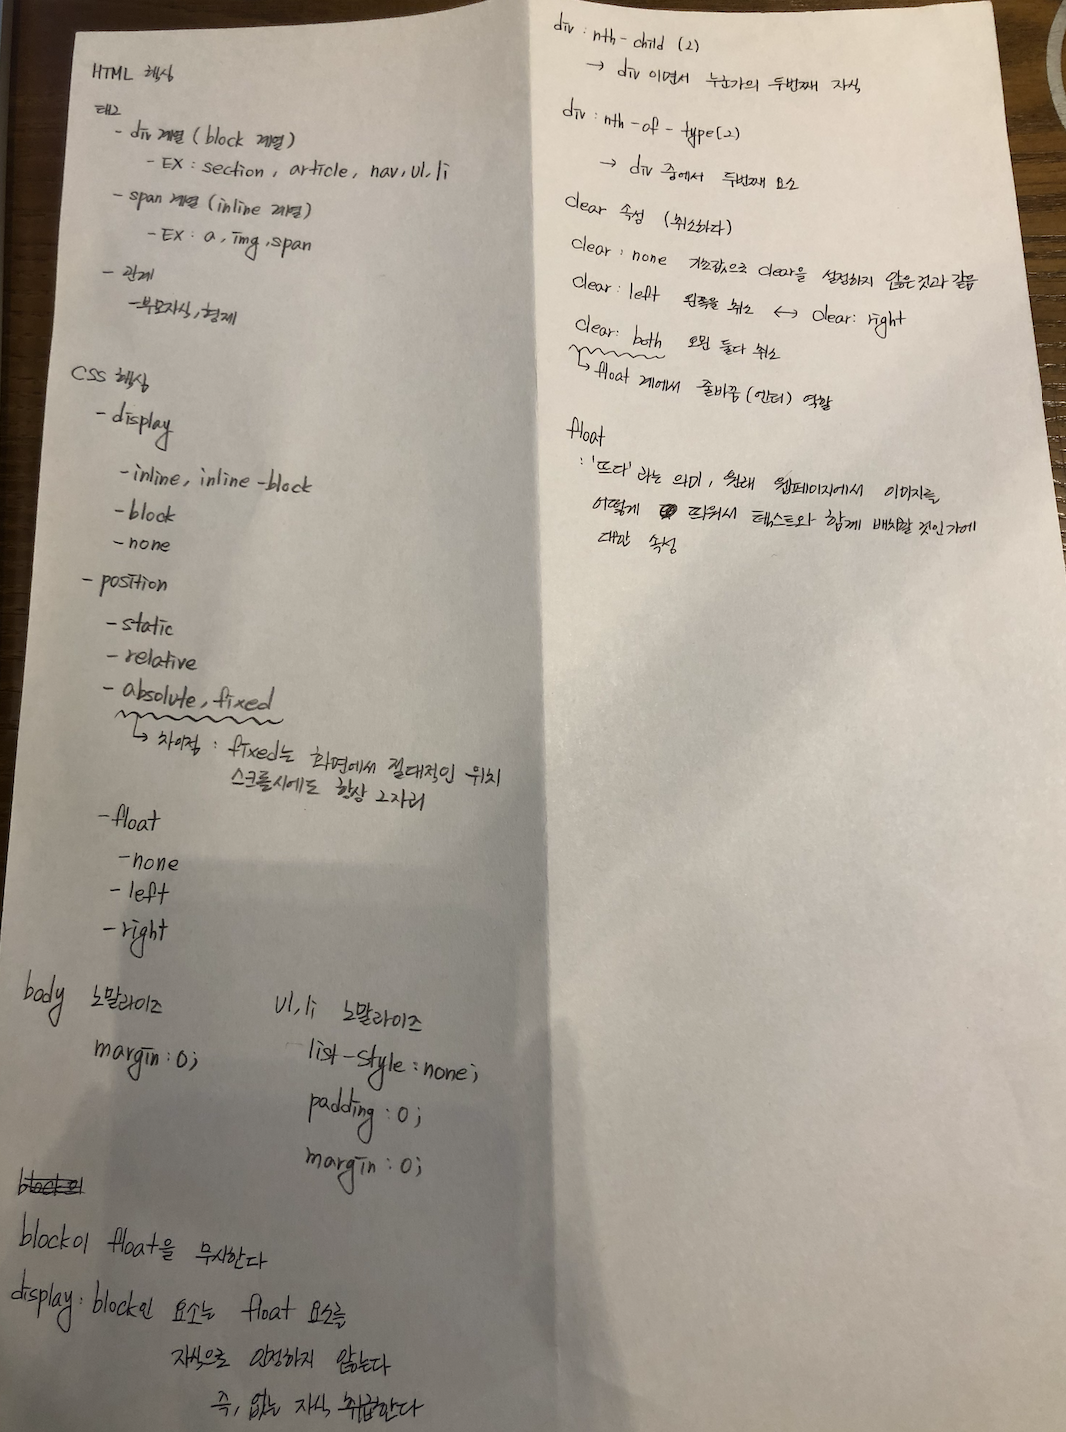 HTML 핵심
태그
- div 계열 (block 계열)
- EX : section, article, nav, ul, li
- span 계열 (inline 계열)
- EX : a, img, span
- 관계
- 부모자식, 형제
CSS 핵심
- display
- inline, inline-block
- block
- none
- position
- static
- relative
- absolute, fixed
↳ 차이점 : fixed는 화면에서 절대적인 위치
스크롤시에도 항상 그자리
- float
- none
- left
- right
body 노말라이즈
margin : 0;
ul, li 노말라이즈
list-style : none;
padding : 0;
margin : 0;
block이 float을 무시한다
display : block인 요소는 float 요소를
자식으로 인정하지 않는다
즉, 없는 자식 취급한다
div : nth - child (2)
→ div 이면서 누군가의 두번째 자식
div : nth - of - type(2)
→ div 중에서 두번째 요소
clear 속성 (취소하다)
clear : none 기초값으로 clear을 설정하지 않은것과 같음
clear : left 왼쪽을 취소 ↔ clear : right
clear : both 오왼 둘다 취소
↳ float 계에서 줄바꿈 (엔터) 역할
float
: '뜨다' 라는 의미, 원래 웹페이지에서 이미지를
어떻게 띄워서 텍스트와 함께 배치할 것인가에
대한 속성